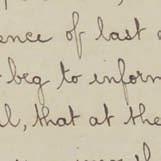 ence of last
beg to inform
that at the